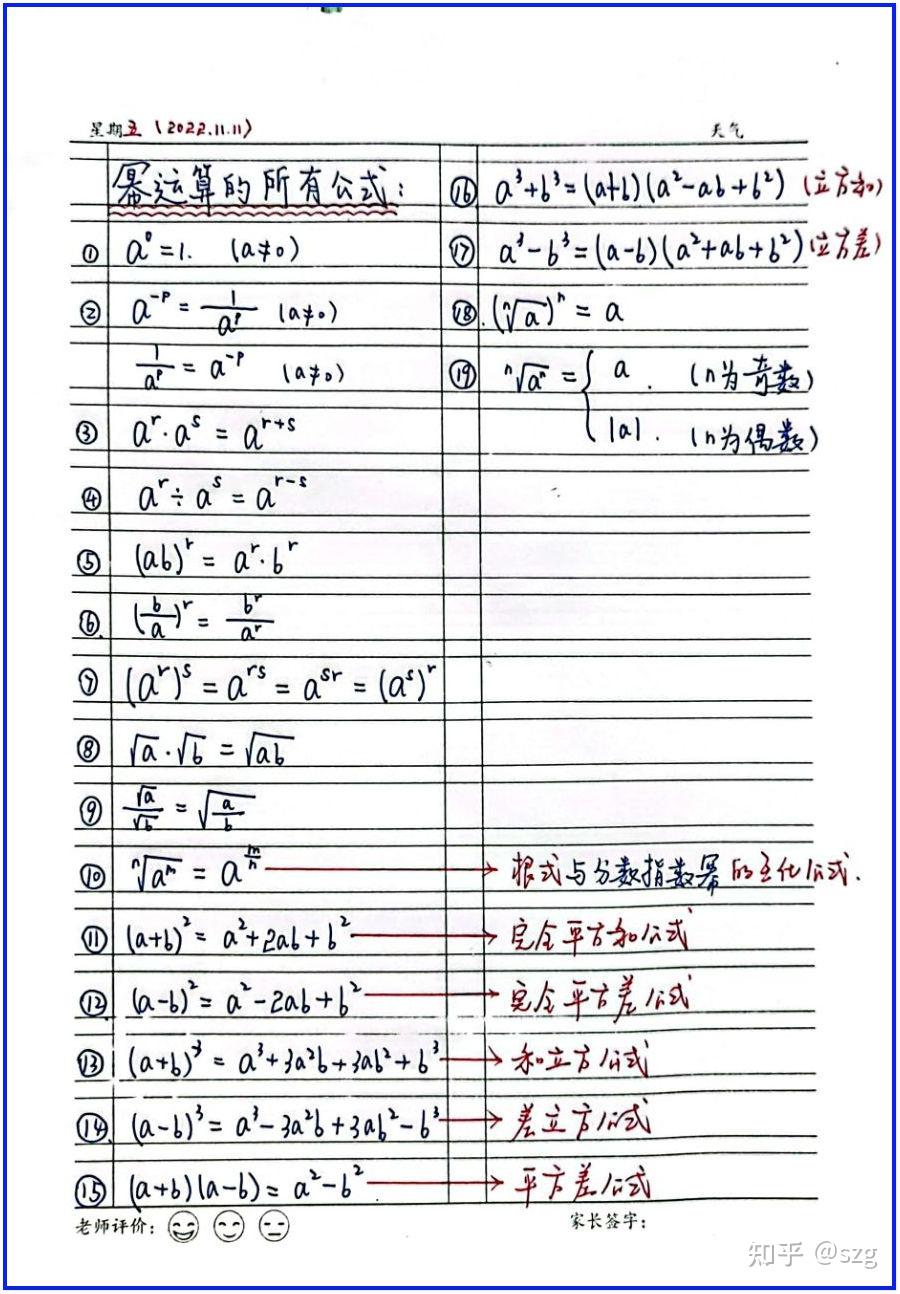 星期五（2022.11.11）
天气
幂运算的所有公式：
① a⁰=1. (a≠0)
② a⁻ᵖ = 1/aᵖ (a≠0)
1/aᵖ = a⁻ᵖ (a≠0)
③ aʳ·aˢ = aʳ⁺ˢ
④ aʳ÷aˢ = aʳ⁻ˢ
⑤ (ab)ʳ = aʳ·bʳ
⑥. (b/a)ʳ = bʳ/aʳ
⑦ (aʳ)ˢ = aʳˢ = aˢʳ = (aˢ)ʳ
⑧ √a·√b = √(ab)
⑨ √a/√b = √(a/b)
⑩ ⁿ√(aᵐ) = a^(m/n) → 根式与分数指数幂的互化公式.
⑪ (a+b)² = a²+2ab+b² → 完全平方和公式
⑫ (a-b)² = a²-2ab+b² → 完全平方差公式
⑬ (a+b)³ = a³+3a²b+3ab²+b³ → 和立方公式
⑭. (a-b)³ = a³-3a²b+3ab²-b³ → 差立方公式
⑮ (a+b)(a-b) = a²-b² → 平方差公式
⑯ a³+b³=(a+b)(a²-ab+b²)（立方和）
⑰ a³-b³=(a-b)(a²+ab+b²)（立方差）
⑱. (ⁿ√a)ⁿ = a
⑲ ⁿ√(aⁿ) = { a. (n为奇数)
|a|. (n为偶数)
老师评价：
家长签字：
知乎 @szg